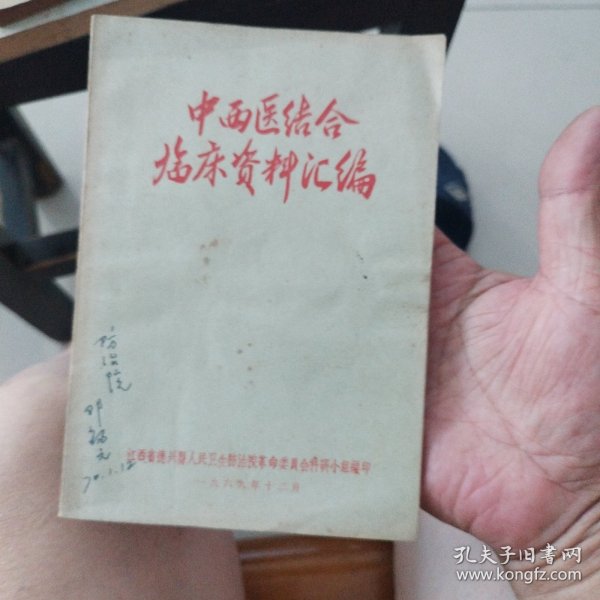 中西医结合
临床资料汇编
防治院
70.1.12
江西省德兴县人民卫生防治院革命委员会科研小组编印
一九六九年十二月
孔夫子旧书网
www.kongfz.com